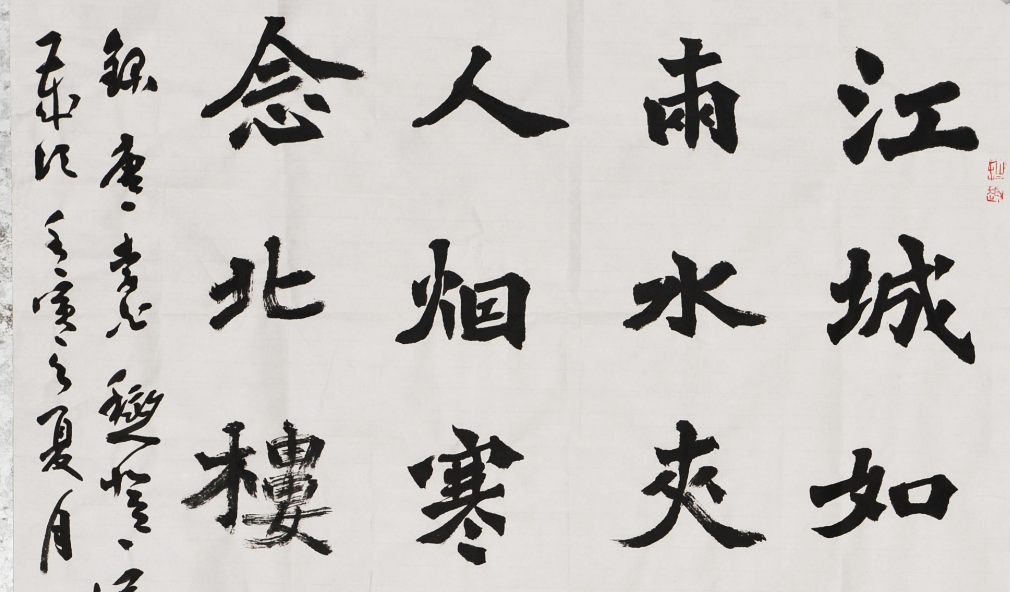 江城如
兩水夾
人烟寒
念北樓
錄唐李白秋登
壬寅之夏月